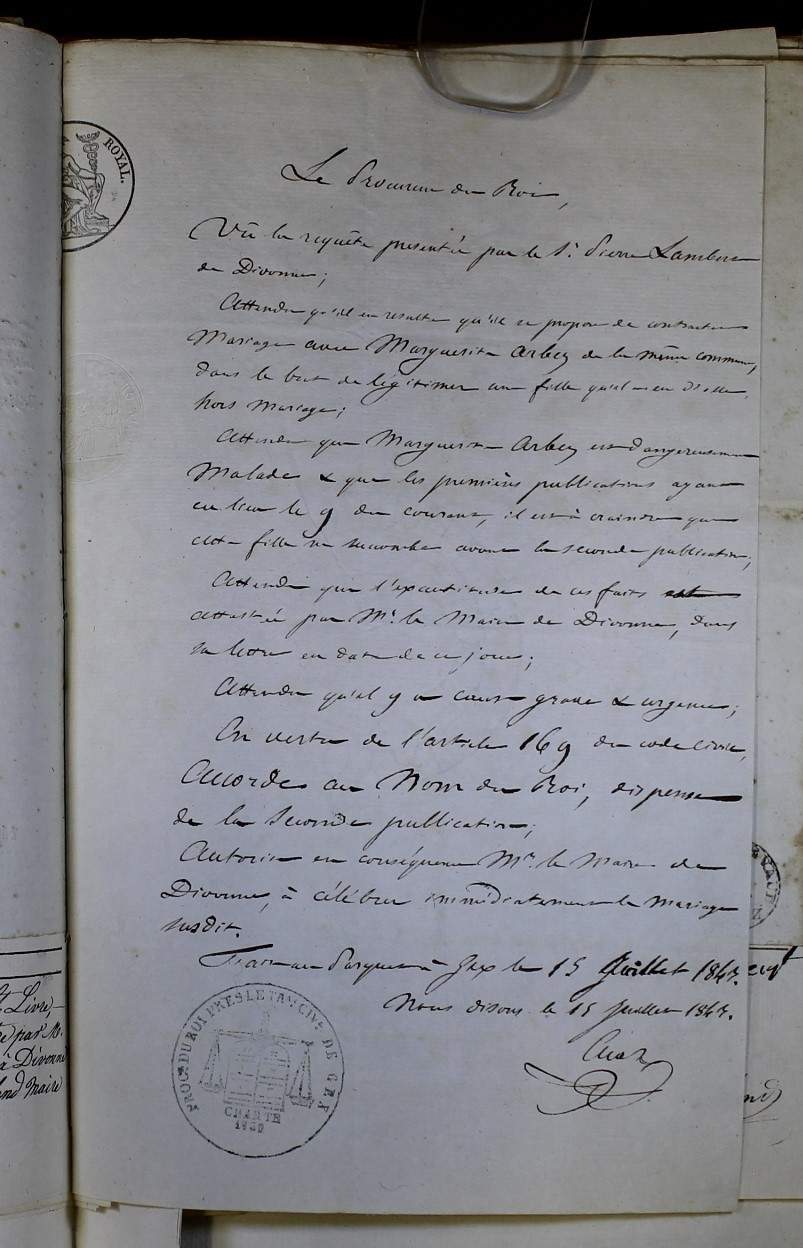 ROYAL.
Le Procureur du Roi,
Vû la requête presentée par le Sr. Pierre Lambert
de Divonne;
Attendu qu'il en resulte qu'il se propose de contracter
Mariage avec Marguerite Arbey de la même commune,
dans le but de légitimer une fille qu'il a eu d'elle
hors mariage;
Attendu que Marguerite Arbey est dangereusement
Malade & que les premières publications ayant
eu lieu le 9 du courant, il est à craindre que
cette fille ne succombe avant la seconde publication;
Attendu que l'exactitude de ces faits est
attestée par Mr. le Maire de Divonne, dans
sa lettre en date de ce jour;
Attendu qu'il y a cause grave & urgence;
En vertu de l'article 169 du code civil,
Accorde au Nom du Roi, dispense
de la seconde publication;
Autorise en conséquence Mr. le Maire de
Divonne, à célébrer immédiatement le mariage
susdit.
Fait au Parquet à Gex le 15 Juillet
Nous disons le 15 Juillet
PROC. DU ROI PRES LE TRIB. CIV. DE GEX
CHARTE
1830
t Livre,
par M.
à Divonne
Maire